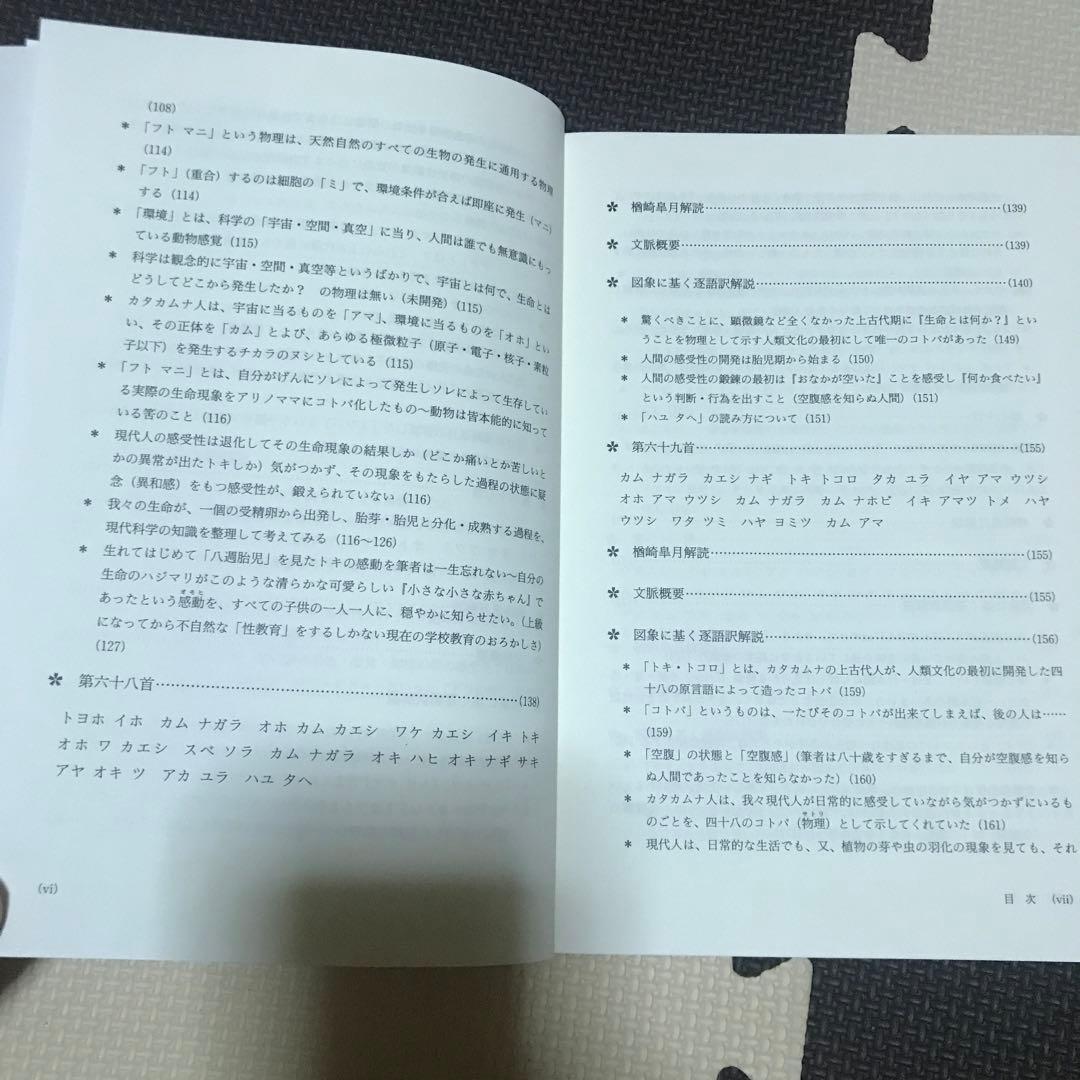 (108)
* 「フト マニ」という物理は、天然自然のすべての生物の発生に通用する物理
(114)
* 「フト」(重合)するのは細胞の「ミ」で、環境条件が合えば即座に発生(マニ)
する (114)
* 「環境」とは、科学の「宇宙・空間・真空」に当り、人間は誰でも無意識にもっ
ている動物感覚 (115)
* 科学は観念的に宇宙・空間・真空等というばかりで、宇宙とは何で、生命とは
どうしてどこから発生したか? の物理は無い(未開発)(115)
* カタカムナ人は、宇宙に当るものを「アマ」、環境に当るものを「オホ」とい
い、その正体を「カム」とよび、あらゆる極微粒子(原子・電子・核子・素粒
子以下)を発生するチカラのヌシとしている (115)
* 「フト マニ」とは、自分がげんにソレによって発生しソレによって生存してい
る実際の生命現象をアリノママにコトバ化したもの〜動物は皆本能的に知って
いる筈のこと (116)
* 現代人の感受性は退化してその生命現象の結果しか(どこか痛いとか苦しいと
かの異常が出たトキしか)気がつかず、その現象をもたらした過程の状態に疑
念(異和感)をもつ感受性が、鍛えられていない (116)
* 我々の生命が、一個の受精卵から出発し、胎芽・胎児と分化・成熟する過程を、
現代科学の知識を整理して考えてみる (116〜126)
* 生れてはじめて「八週胎児」を見たトキの感動を筆者は一生忘れない〜自分の
生命のハジマリがこのような清らかな可愛らしい『小さな小さな赤ちゃん』で
あったという感動を、すべての子供の一人一人に、穏やかに知らせたい。(上級
になってから不自然な「性教育」をするしかない現在の学校教育のおろかしさ)
(127)
* 第六十八首……(138)
トヨホ イホ カム ナガラ オホ カム カエシ ワケ カエシ イキ トキ
オホ ワ カエシ スベ ソラ カム ナガラ オキ ハヒ オキ ナギ サキ
アヤ オキ ツ アカ ユラ ハユ タヘ
(vi)
* 楢崎皐月解読……(139)
* 文脈概要……(139)
* 図象に基く逐語訳解説……(140)
* 驚くべきことに、顕微鏡など全くなかった上古代期に『生命とは何か?』とい
うことを物理として示す人類文化の最初にして唯一のコトバがあった (149)
* 人間の感受性の開発は胎児期から始まる (150)
* 人間の感受性の鍛錬の最初は『おなかが空いた』ことを感受し『何か食べたい』
という判断・行為を出すこと(空腹感を知らぬ人間)(151)
* 「ハユ タヘ」の読み方について (151)
* 第六十九首……(155)
カム ナガラ カエシ ナギ トキ トコロ タカ ユラ イヤ アマ ウツシ
オホ アマ ウツシ カム ナガラ カム ナホビ イキ アマツ トメ ハヤ
ウツシ ワタ ツミ ハヤ ヨミツ カム アマ
* 楢崎皐月解読……(155)
* 文脈概要……(155)
* 図象に基く逐語訳解説……(156)
* 「トキ・トコロ」とは、カタカムナの上古代人が、人類文化の最初に開発した四
十八の原言語によって造ったコトバ (159)
* 「コトバ」というものは、一たびそのコトバが出来てしまえば、後の人は……
(159)
* 「空腹」の状態と「空腹感」(筆者は八十歳をすぎるまで、自分が空腹感を知ら
ぬ人間であったことを知らなかった)(160)
* カタカムナ人は、我々現代人が日常的に感受していながら気がつかずにいるも
のごとを、四十八のコトバ(物理)として示してくれていた (161)
* 現代人は、日常的な生活でも、又、植物の芽や虫の羽化の現象を見ても、それ
目 次 (vii)